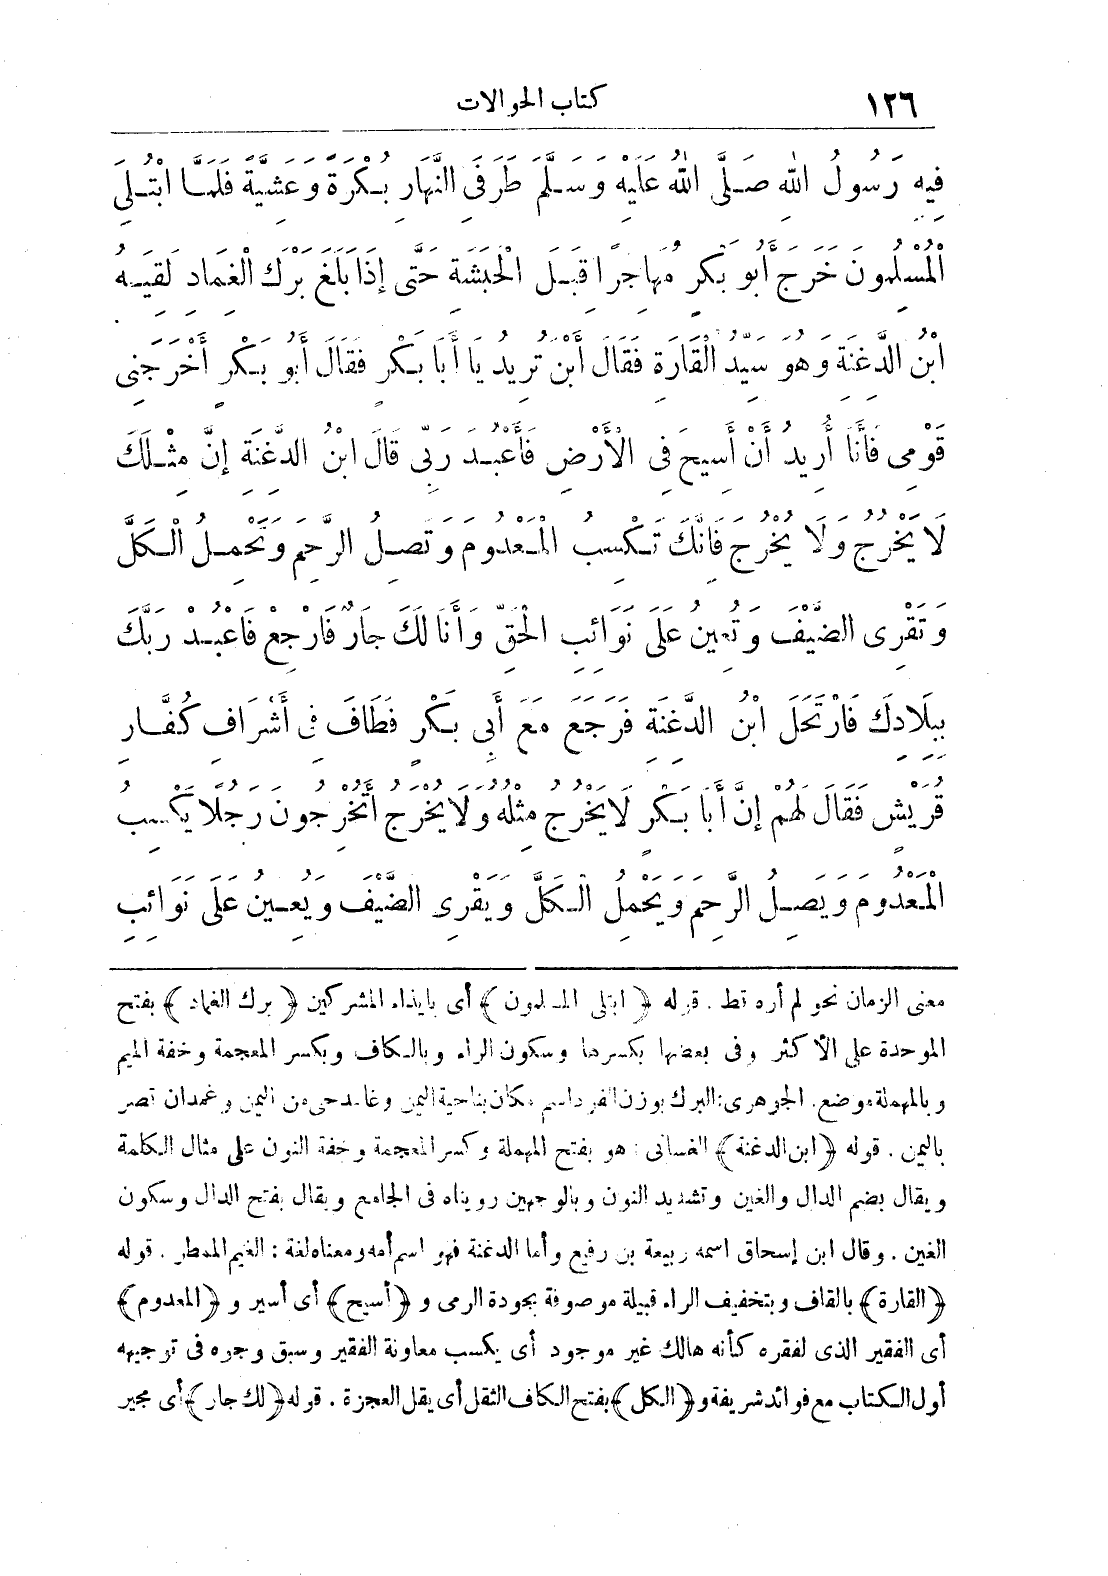 ١٢٦ كتاب الحوالات
فِيهِ رَسُولُ اللهِ صَلَّى اللهُ عَلَيْهِ وَسَلَّمَ طَرَفَىِ النَّهَارِ بُكْرَةً وَعَشِيَّةً فَلَمَّا ابْتُلِيَ
الْمُسْلِمُونَ خَرَجَ أَبُو بَكْرٍ مُهَاجِرًا قِبَلَ الْحَبَشَةِ حَتَّى إِذَا بَلَغَ بَرْكَ الْغِمَادِ لَقِيَهُ
ابْنُ الدَّغِنَةِ وَهُوَ سَيِّدُ الْقَارَةِ فَقَالَ أَيْنَ تُرِيدُ يَا أَبَا بَكْرٍ فَقَالَ أَبُو بَكْرٍ أَخْرَجَنِى
قَوْمِى فَأَنَا أُرِيدُ أَنْ أَسِيحَ فِى الْأَرْضِ فَأَعْبُدَ رَبِّى قَالَ ابْنُ الدَّغِنَةِ إِنَّ مِثْلَكَ
لَا يَخْرُجُ وَلَا يُخْرَجُ فَإِنَّكَ تَكْسِبُ الْمَعْدُومَ وَتَصِلُ الرَّحِمَ وَتَحْمِلُ الْكَلَّ
وَتَقْرِى الضَّيْفَ وَتُعِينُ عَلَى نَوَائِبِ الْحَقِّ وَأَنَا لَكَ جَارٌ فَارْجِعْ فَاعْبُدْ رَبَّكَ
بِبِلَادِكَ فَارْتَحَلَ ابْنُ الدَّغِنَةِ فَرَجَعَ مَعَ أَبِى بَكْرٍ فَطَافَ فِى أَشْرَافِ كُفَّارِ
قُرَيْشٍ فَقَالَ لَهُمْ إِنَّ أَبَا بَكْرٍ لَا يَخْرُجُ مِثْلُهُ وَلَا يُخْرَجُ أَتُخْرِجُونَ رَجُلًا يَكْسِبُ
الْمَعْدُومَ وَيَصِلُ الرَّحِمَ وَيَحْمِلُ الْكَلَّ وَيَقْرِى الضَّيْفَ وَيُعِينُ عَلَى نَوَائِبِ
معنى الزمان نحو لم أره قط . قوله ﴿ابتلى المسلمون﴾ أى بايذاء المشركين ﴿برك الغماد﴾ بفتح
الموحدة على الأكثر وفى بعضها بكسرها وسكون الراء وبالكاف وبكسر المعجمة وخفة الميم
وبالمهملة موضع. الجوهرى: البرك بوزن القرد اسم مكان بناحية اليمن وغامد حى من اليمن وغمدان قصر
باليمن . قوله ﴿ابن الدغنة﴾ الغسانى : هو بفتح المهملة وكسر المعجمة وخفة النون على مثال الكلمة
ويقال بضم الدال والغين وتشديد النون وبالوجهين رويناه فى الجامع ويقال بفتح الدال وسكون
الغين . وقال ابن إسحاق اسمه ربيعة بن رفيع وأما الدغنة فهو اسم أمه ومعناه لغة : الغيم الممطر . قوله
﴿القارة﴾ بالقاف وبتخفيف الراء قبيلة موصوفة بجودة الرمى و ﴿أسيح﴾ أى أسير و ﴿المعدوم﴾
أى الفقير الذى لفقره كأنه هالك غير موجود أى يكسب معاونة الفقير وسبق وجوه فى توجيهه
أول الكتاب مع فوائد شريفة و ﴿الكل﴾ بفتح الكاف الثقل أى يقل العجزة . قوله ﴿لك جار﴾ أى مجير